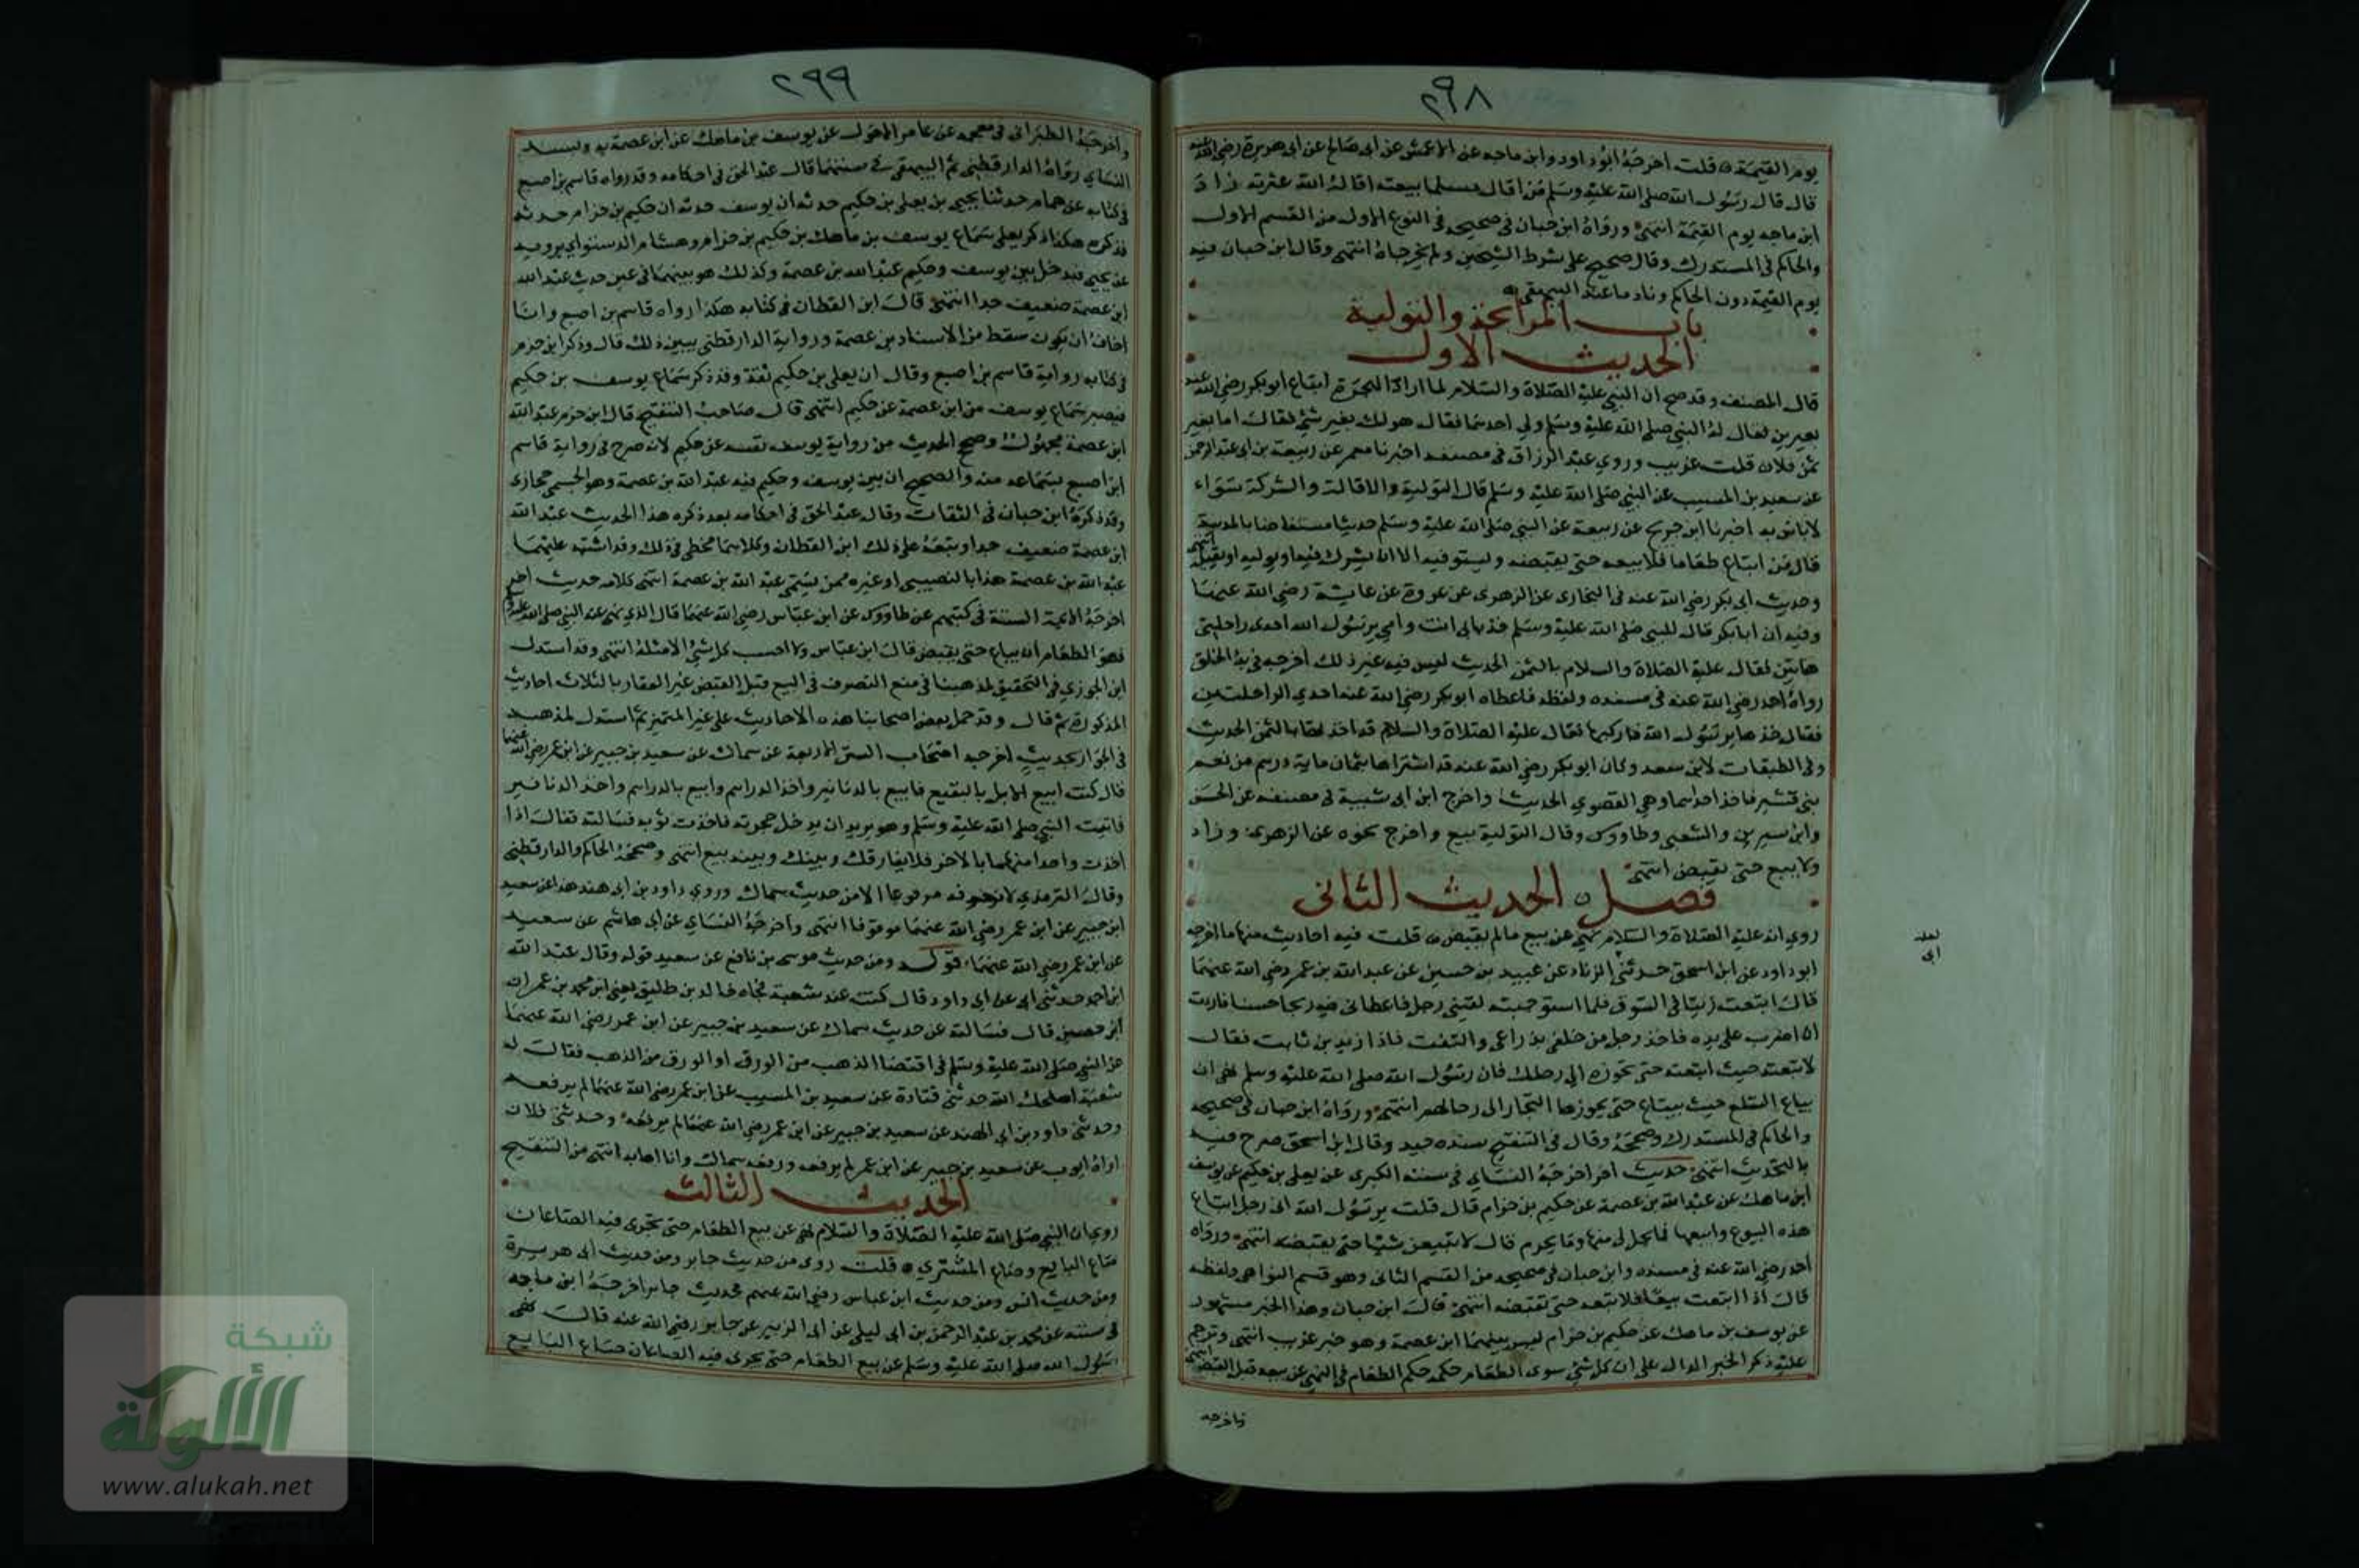 ٢٩٨
يوم القيمة قلت اخرجه ابو داود وابن ماجه عن الاعمش عن ابى صالح عن ابى هريرة رضي الله عنه
قال قال رسول الله صلى الله عليه وسلم من اقال مسلما بيعته اقاله الله عثرته زاد
ابن ماجه يوم القيمة انتهى ورواه ابن حبان في صحيحه في النوع الاول من القسم الاول
والحاكم في المستدرك وقال صحيح على شرط الشيخين ولم يخرجاه انتهى وقال ابن حبان فيه
يوم القيمة دون الحاكم
باب المرابحة والتولية
الحديث الاول
قال المصنف وقد صح ان النبي عليه الصلاة والسلام لما اراد الهجرة ابتاع ابو بكر رضي الله عنه
بعيرين فقال له النبي صلى الله عليه وسلم ولني احدهما فقال هو لك بغير شئ فقال اما بغير
ثمن فلا قلت غريب وروي عبد الرزاق في مصنفه اخبرنا معمر عن ربيعة بن ابى عبد الرحمن
عن سعيد بن المسيب عن النبي صلى الله عليه وسلم قال التولية والاقالة والشركة سواء
لا باس به اخبرنا ابن جريج عن ربيعة عن النبي صلى الله عليه وسلم حديثا مستفاضا بالمدينة
قال من ابتاع طعاما فلا يبيعه حتى يقبضه ويستوفيه الا ان يشرك فيه او يوليه او يقيله انتهى
وحديث ابى بكر رضي الله عنه في البخارى عن الزهرى عن عروة عن عايشة رضي الله عنها
وفيه ان ابا بكر قال للنبي صلى الله عليه وسلم خذ بابى انت وامي يرسول الله احدى راحلتى
هاتين فقال عليه الصلاة والسلام بالثمن الحديث ليس فيه غير ذلك اخرجه في بدؤ الخلق
رواه احمد رضي الله عنه في مسنده ولفظه فاعطاه ابو بكر رضي الله عنه احدي الراحلتين
فقال خذها يرسول الله فاركبها فقال عليه الصلاة والسلام قد اخذتها بالثمن الحديث
وفى الطبقات لابن سعد وكان ابو بكر رضي الله عنه قد اشتراها بثمان ماية درهم من نعم
بنى قشير فاخذ احداهما وهي القصوي الحديث واخرج ابن ابى شيبة في مصنفه عن الحسن
وابن سيرين والشعبى وطاووس وقال التولية بيع واخرج نحوه عن الزهرى وزاد
ولا بيع حتى يقبض انتهى
فصل الحديث الثانى
روي انه عليه الصلاة والسلام نهي عن بيع ما لم يقبض قلت فيه احاديث منها ما اخرجه
ابو داود عن ابن اسحق حدثني الزناد عن عبيد بن حسين عن عبد الله بن عمر رضي الله عنهما
قال ابتعت زيتا في السوق فلما استوجبته لقيني رجل فاعطانى فيه ربحا حسنا فاردت
ان اضرب على يده فاخذ رجل من خلفى بذراعى والتفت فاذا زيد بن ثابت فقال
لا تبعه حيث ابتعته حتى تحوزه الى رحلك فان رسول الله صلى الله عليه وسلم نهى ان
يباع السلع حيث يبتاع حتى يحوزها التجار الى رحالهم انتهى ورواه ابن حبان في صحيحه
والحاكم في المستدرك وصححه وقال في التنقيح سنده جيد وقال ابن اسحق صرح فيه
بالتحديث انتهى حديث اخر اخرجه النساى في سننه الكبرى عن يعلى بن حكيم عن يوسف
ابن ماهك عن عبد الله بن عصمة عن حكيم بن حزام قال قلت يرسول الله انى رجل ابتاع
هذه البيوع وابيعها فما يحل لى منها وما يحرم قال لا تبيعن شيئا حتى تقبضه انتهى ورواه
احمد رضي الله عنه في مسنده وابن حبان في صحيحه من القسم الثانى وهو قسم النواهى ولفظه
قال اذا ابتعت بيعا فلا تبعه حتى تقبضه انتهى قال ابن حبان وهذا الخبر مشهور
عن يوسف بن ماهك عن حكيم بن حزام ليس بينهما ابن عصمة وهو خبر غريب انتهى وترجم
عليه ذكر الخبر الدال على ان كل شئ سوى الطعام حكمه حكم الطعام في النهى عن بيعه قبل القبض انتهى
واخرجه
٢٩٩
واخرجه الطبرانى في معجمه عن عامر الاحول عن يوسف بن ماهك عن ابن عصمة به وبسند
النساى رواه الدارقطنى ثم البيهقى فى سننهما قال عبد الحق في احكامه وقد رواه قاسم بن اصبع
في كتابه عن همام حدثنا يحيى بن يعلى بن حكيم حدثه ان يوسف حدثه ان حكيم بن حزام حدثه
فذكره هكذا ذكر يعلى سماع يوسف بن ماهك بن حكيم بن حزام وهشام الدستواي يرويه
عن يحيى فيدخل بين يوسف وحكيم عبد الله بن عصمة وكذلك هو بينهما في غير حديث عبد الله
ابن عصمة ضعيف جدا انتهى قال ابن القطان في كتابه هكذا رواه قاسم بن اصبع وانا
اخاف ان يكون سقط من الاسناد بن عصمة ورواية الدارقطنى يبين ذلك قال وذكر ابن حزم
في كتابه رواية قاسم بن اصبع وقال ان يعلى بن حكيم ثقة وقد ذكر سماع يوسف بن حكيم
فيصير سماع يوسف من ابن عصمة عن حكيم انتهى قال صاحب التنقيح قال ابن حزم عبد الله
ابن عصمة مجهول وصح الحديث من رواية يوسف نفسه عن حكيم لانه صرح في رواية قاسم
ابن اصبع بسماعه منه والصحيح ان بين يوسف وحكيم فيه عبد الله بن عصمة وهو الجشمى حجازى
وقد ذكره ابن حبان في الثقات وقال عبد الحق في احكامه بعد ذكره هذا الحديث عبد الله
ابن عصمة ضعيف جدا وتبعه على ذلك ابن القطان وكلاهما مخطى في ذلك وقد اشتبه عليهما
عبد الله بن عصمة هذا بالنصيبى او غيره ممن يسمى عبد الله بن عصمة انتهى كلامه حديث اخر
اخرجه الايمة الستة في كتبهم عن طاووس عن ابن عباس رضي الله عنهما قال الذي نهى عنه النبي صلى الله عليه وسلم
فهو الطعام ان يباع حتى يقبض قال ابن عباس ولا احسب كل شئ الا مثله انتهى وقد استدل
ابن الجوزي في التحقيق لمذهبنا في منع التصرف في البيع قبل القبض غير العقار بالثلاث احاديث
المذكورة ثم قال وقد حمل بعض اصحابنا هذه الاحاديث على غير المتميز ثم استدل لمذهبه
في الجواز بحديث اخرجه اصحاب السنن الاربعة عن سماك عن سعيد بن جبير عن ابن عمر رضي الله عنهما
قال كنت ابيع الابل بالبقيع فابيع بالدنانير واخذ الدراهم وابيع بالدراهم واخذ الدنانير
فاتيت النبي صلى الله عليه وسلم وهو يريد ان يدخل حجرته فاخذت ثوبه فسالته فقال اذا
اخذت واحدا منهما بالاخر فلا يفارقك وبينك وبينه بيع انتهى وصححه الحاكم والدارقطنى
وقال الترمذي لا نعرفه مرفوعا الا من حديث سماك وروي داود بن ابى هند هذا عن سعيد
ابن جبير عن ابن عمر رضي الله عنهما موقوفا انتهى واخرجه النساى عن ابى هاشم عن سعيد
عن ابن عمر رضي الله عنهما قوله ومن حديث موسى بن نافع عن سعيد قوله وقال عبد الله
ابن احمد حدثنى ابى عن ابى داود قال كنت عند شعبة فجاه خالد بن طليق يعنى ابن محمد بن عمران
ابن حصين قال فسالته عن حديث سماك عن سعيد بن جبير عن ابن عمر رضي الله عنهما
عن النبي صلى الله عليه وسلم في اقتضا الذهب من الورق او الورق من الذهب فقال له
شعبة اصلحك الله حدثنى قتادة عن سعيد بن المسيب عن ابن عمر رضي الله عنهما لم يرفعه
وحدثنى داود بن ابي الهند عن سعيد بن جبير عن ابن عمر رضي الله عنهما لم يرفعه وحدثنى فلان
اراه ايوب عن سعيد بن جبير عن ابن عمر لم يرفعه ورفعه سماك وانا اهابه انتهى من التنقيح
الحديث الثالث
روي ان النبي صلى الله عليه الصلاة والسلام نهى عن بيع الطعام حتى يجرى فيه الصاعان
صاع البايع وصاع المشتري قلت روى من حديث جابر ومن حديث ابى هريرة
ومن حديث انس ومن حديث ابن عباس رضي الله عنهم فحديث جابر اخرجه ابن ماجه
في سننه عن محمد بن عبد الرحمن بن ابى ليلى عن ابى الزبير عن جابر رضي الله عنه قال نهى
رسول الله صلى الله عليه وسلم عن بيع الطعام حتى يجرى فيه الصاعان صاع البايع
شبكة
الألوكة
www.alukah.net